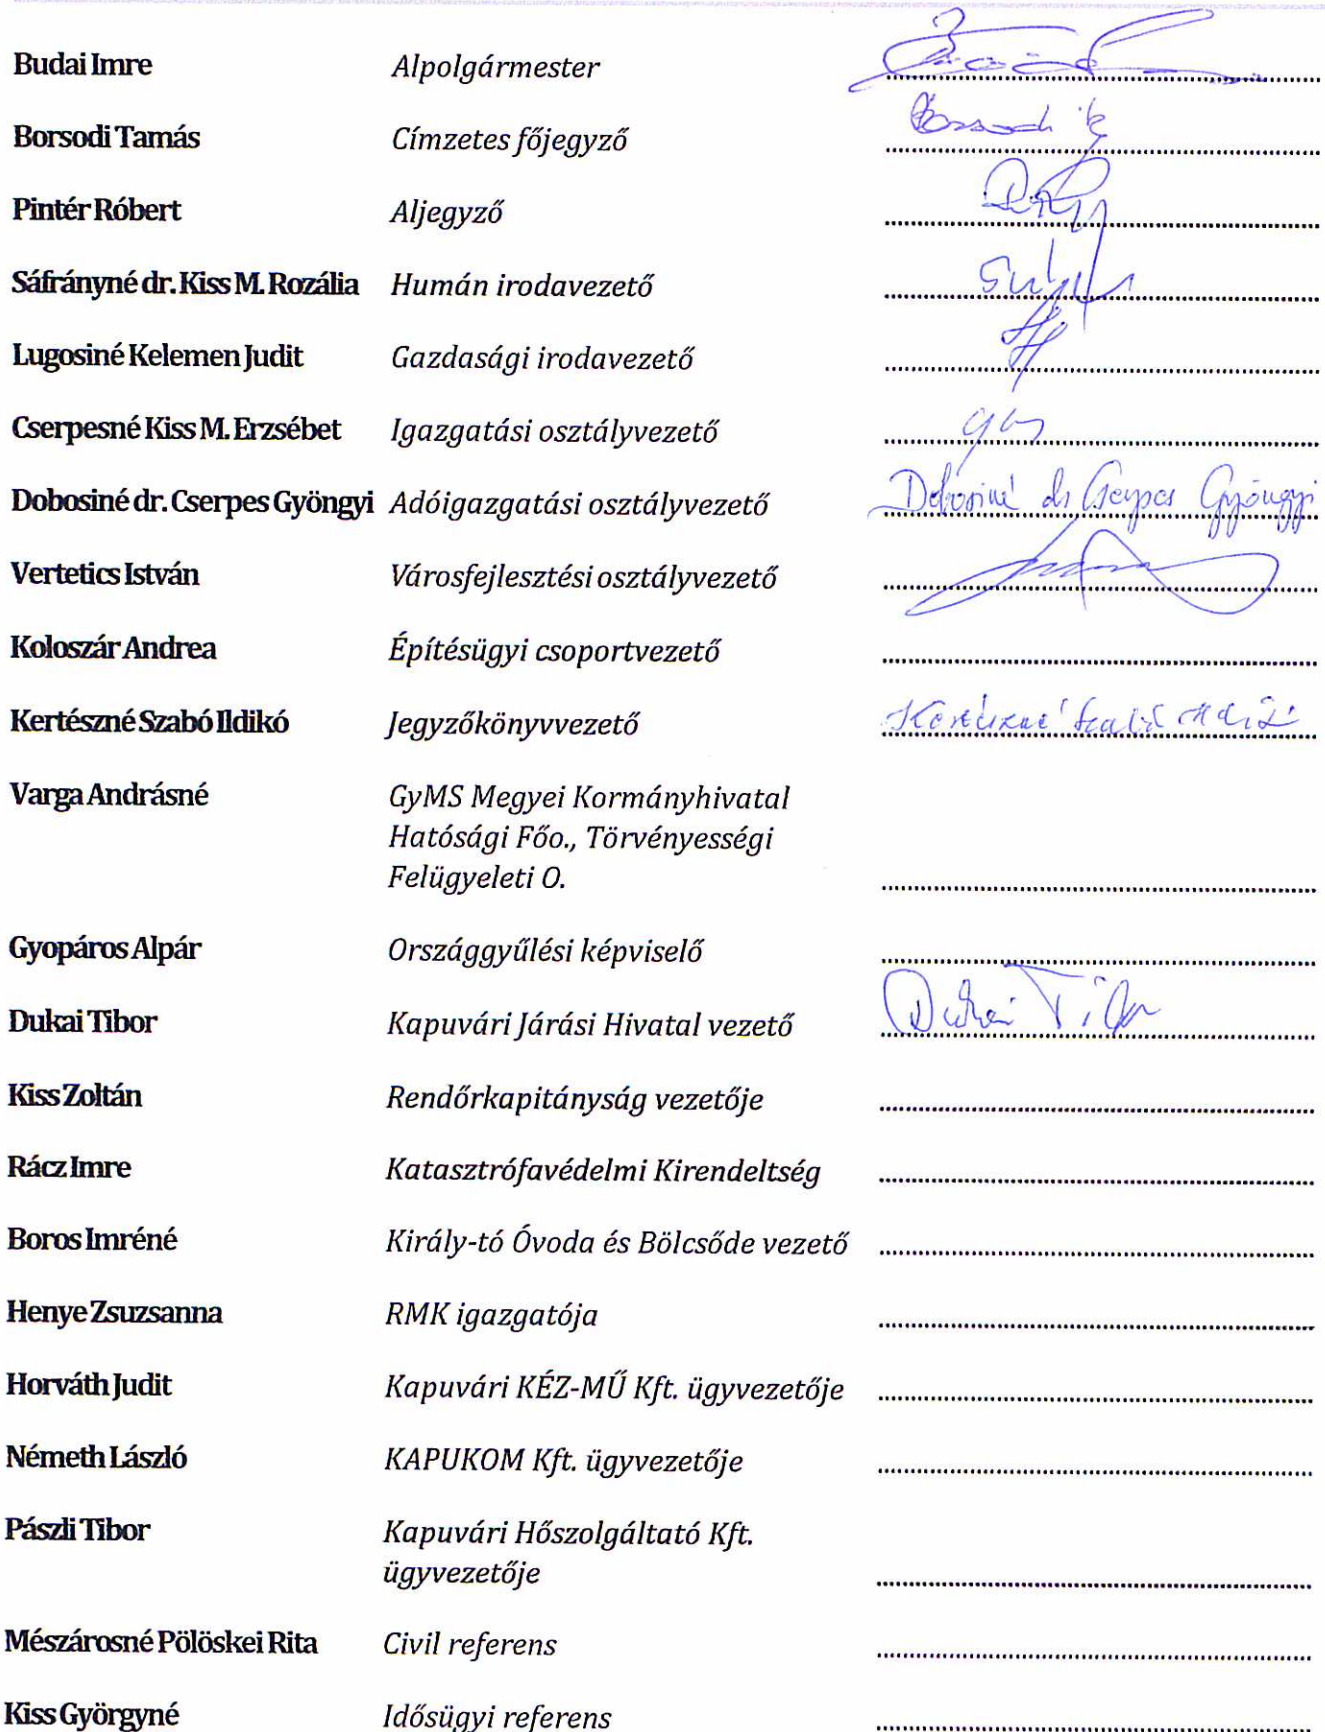 Budai Imre Alpolgármester
Borsodi Tamás Címzetes főjegyző Borsodi T
Pintér Róbert Aljegyző
Sáfrányné dr. Kiss M. Rozália Humán irodavezető
Lugosiné Kelemen Judit Gazdasági irodavezető
Cserpesné Kiss M. Erzsébet Igazgatási osztályvezető
Dobosiné dr. Cserpes Gyöngyi Adóigazgatási osztályvezető Dobosiné dr Cserpes Gyöngyi
Vertetics István Városfejlesztési osztályvezető
Koloszár Andrea Építésügyi csoportvezető
Kertészné Szabó Ildikó Jegyzőkönyvvezető Kertészné Szabó Ildikó
Varga Andrásné GyMS Megyei Kormányhivatal
Hatósági Főo., Törvényességi
Felügyeleti O.
Gyopáros Alpár Országgyűlési képviselő
Dukai Tibor Kapuvári Járási Hivatal vezető Dukai Tibor
Kiss Zoltán Rendőrkapitányság vezetője
Rácz Imre Katasztrófavédelmi Kirendeltség
Boros Imréné Király-tó Óvoda és Bölcsőde vezető
Henye Zsuzsanna RMK igazgatója
Horváth Judit Kapuvári KÉZ-MŰ Kft. ügyvezetője
Németh László KAPUKOM Kft. ügyvezetője
Pászli Tibor Kapuvári Hőszolgáltató Kft.
ügyvezetője
Mészárosné Pölöskei Rita Civil referens
Kiss Györgyné Idősügyi referens